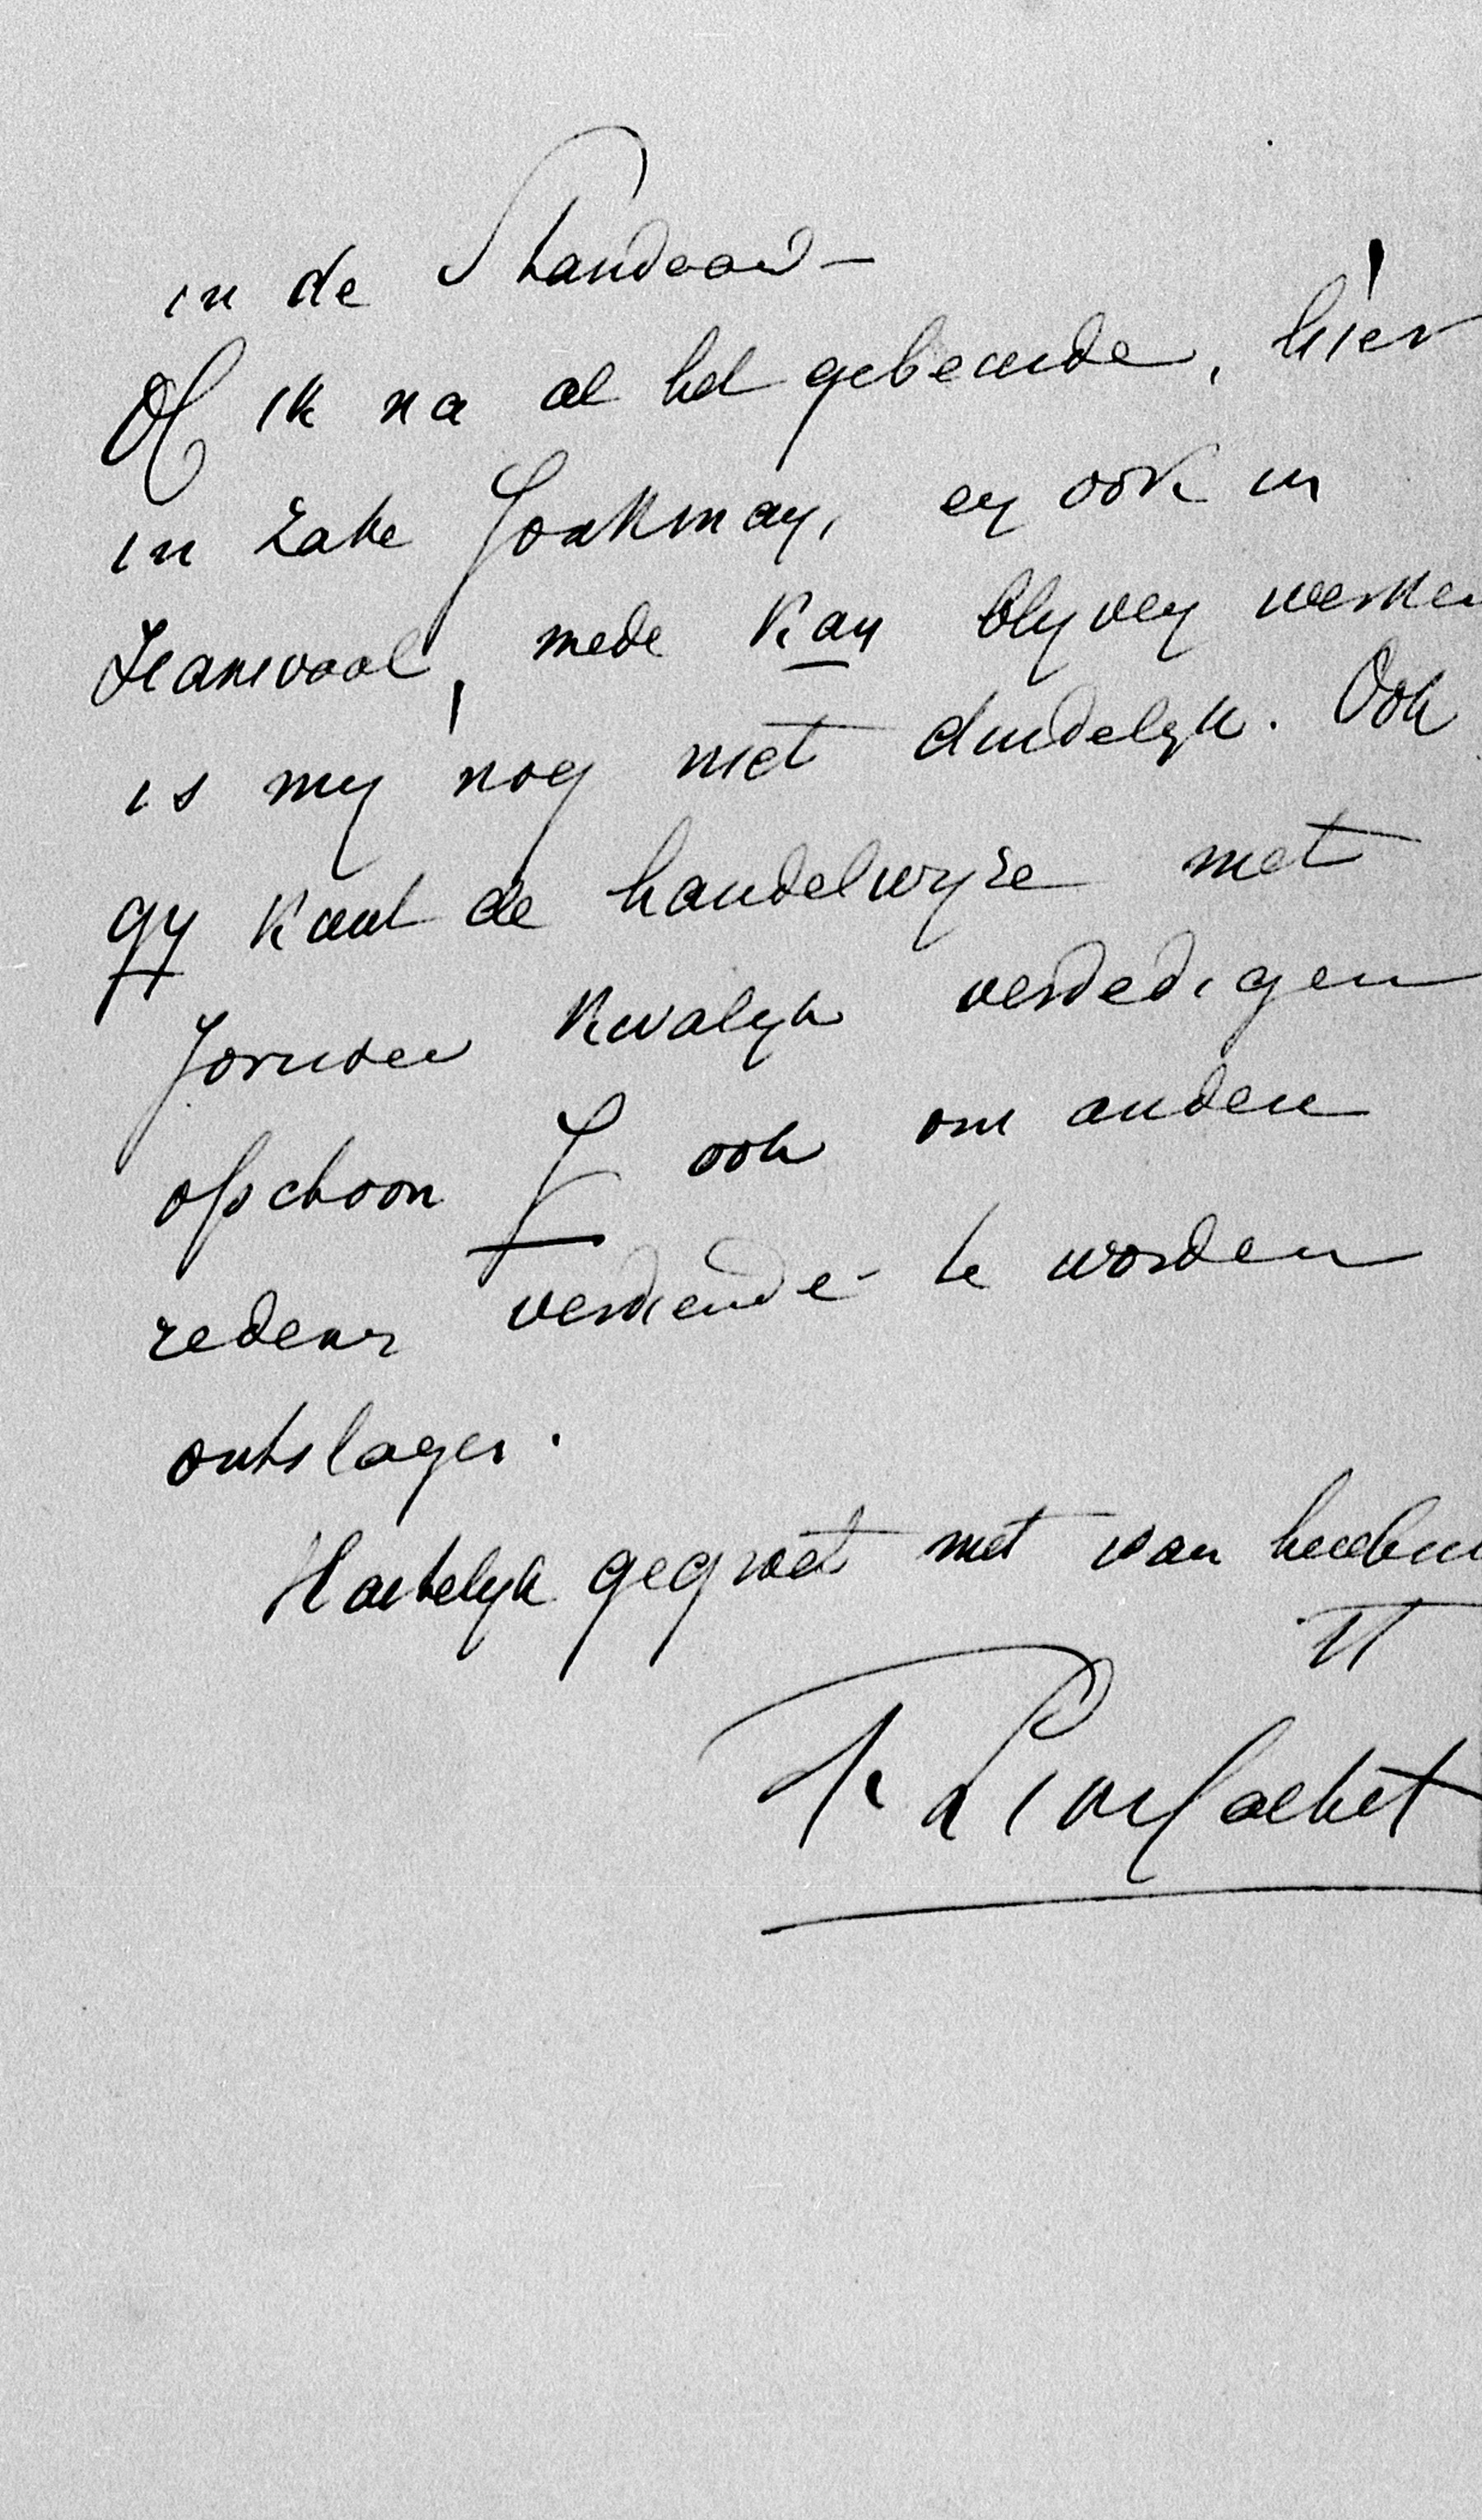 in de Standaard
Of ik na al het gebeurde, hier
in zake Jonkman, en ook in
Transvaal, mede kan blyven werken
is my nog niet duidelyk. Ook
gy kunt de handelwyze met
Jorissen kwalyk verdedigen
ofschoon J ook om andere
redenen verdiende te worden
ontslagen.
Hartelyk gegroet met van
TT